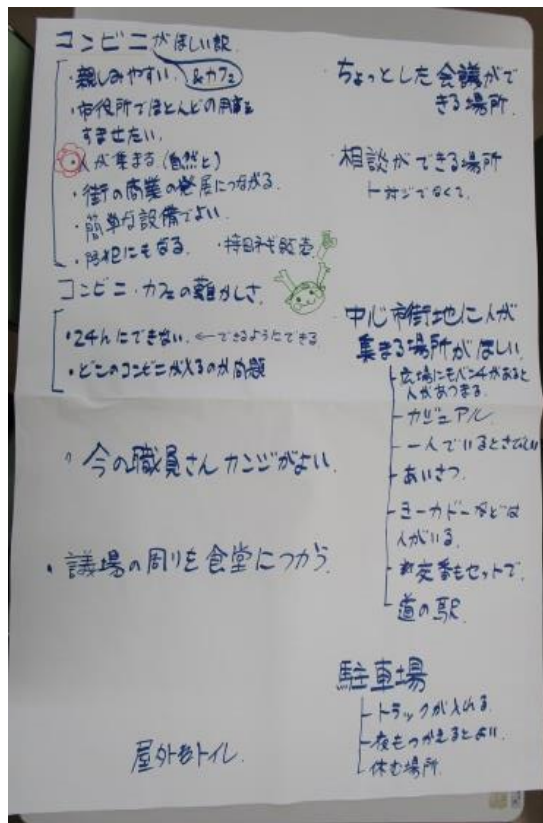 コンビニがほしい訳
・親しみやすい &カフェ
・市役所でほとんどの用事を
すませたい.
・人が集まる(自然と)
・街の商業の発展につながる.
・簡単な設備でよい.
・防犯にもなる
・特日ネギ販売
コンビニ・カフェの難かしさ.
・24hにできない. ←できるようにできる
・どこのコンビニが入るのか問題
今の職員さん カンジがよい.
・議場の周りを食堂につかう
屋外をトイレ.
ちょっとした会議がで
きる場所
・相談ができる場所
中心市街地に人が
集まる場所がほしい
広場にもベンチがあると
人があつまる.
カジュアル
一人でいるとさびしい
あいさつ
ヨーカドーなどは
人がいる.
交番もセットで.
道の駅
駐車場
トラックが入れる.
夜もつかえるとよい.
休む場所.